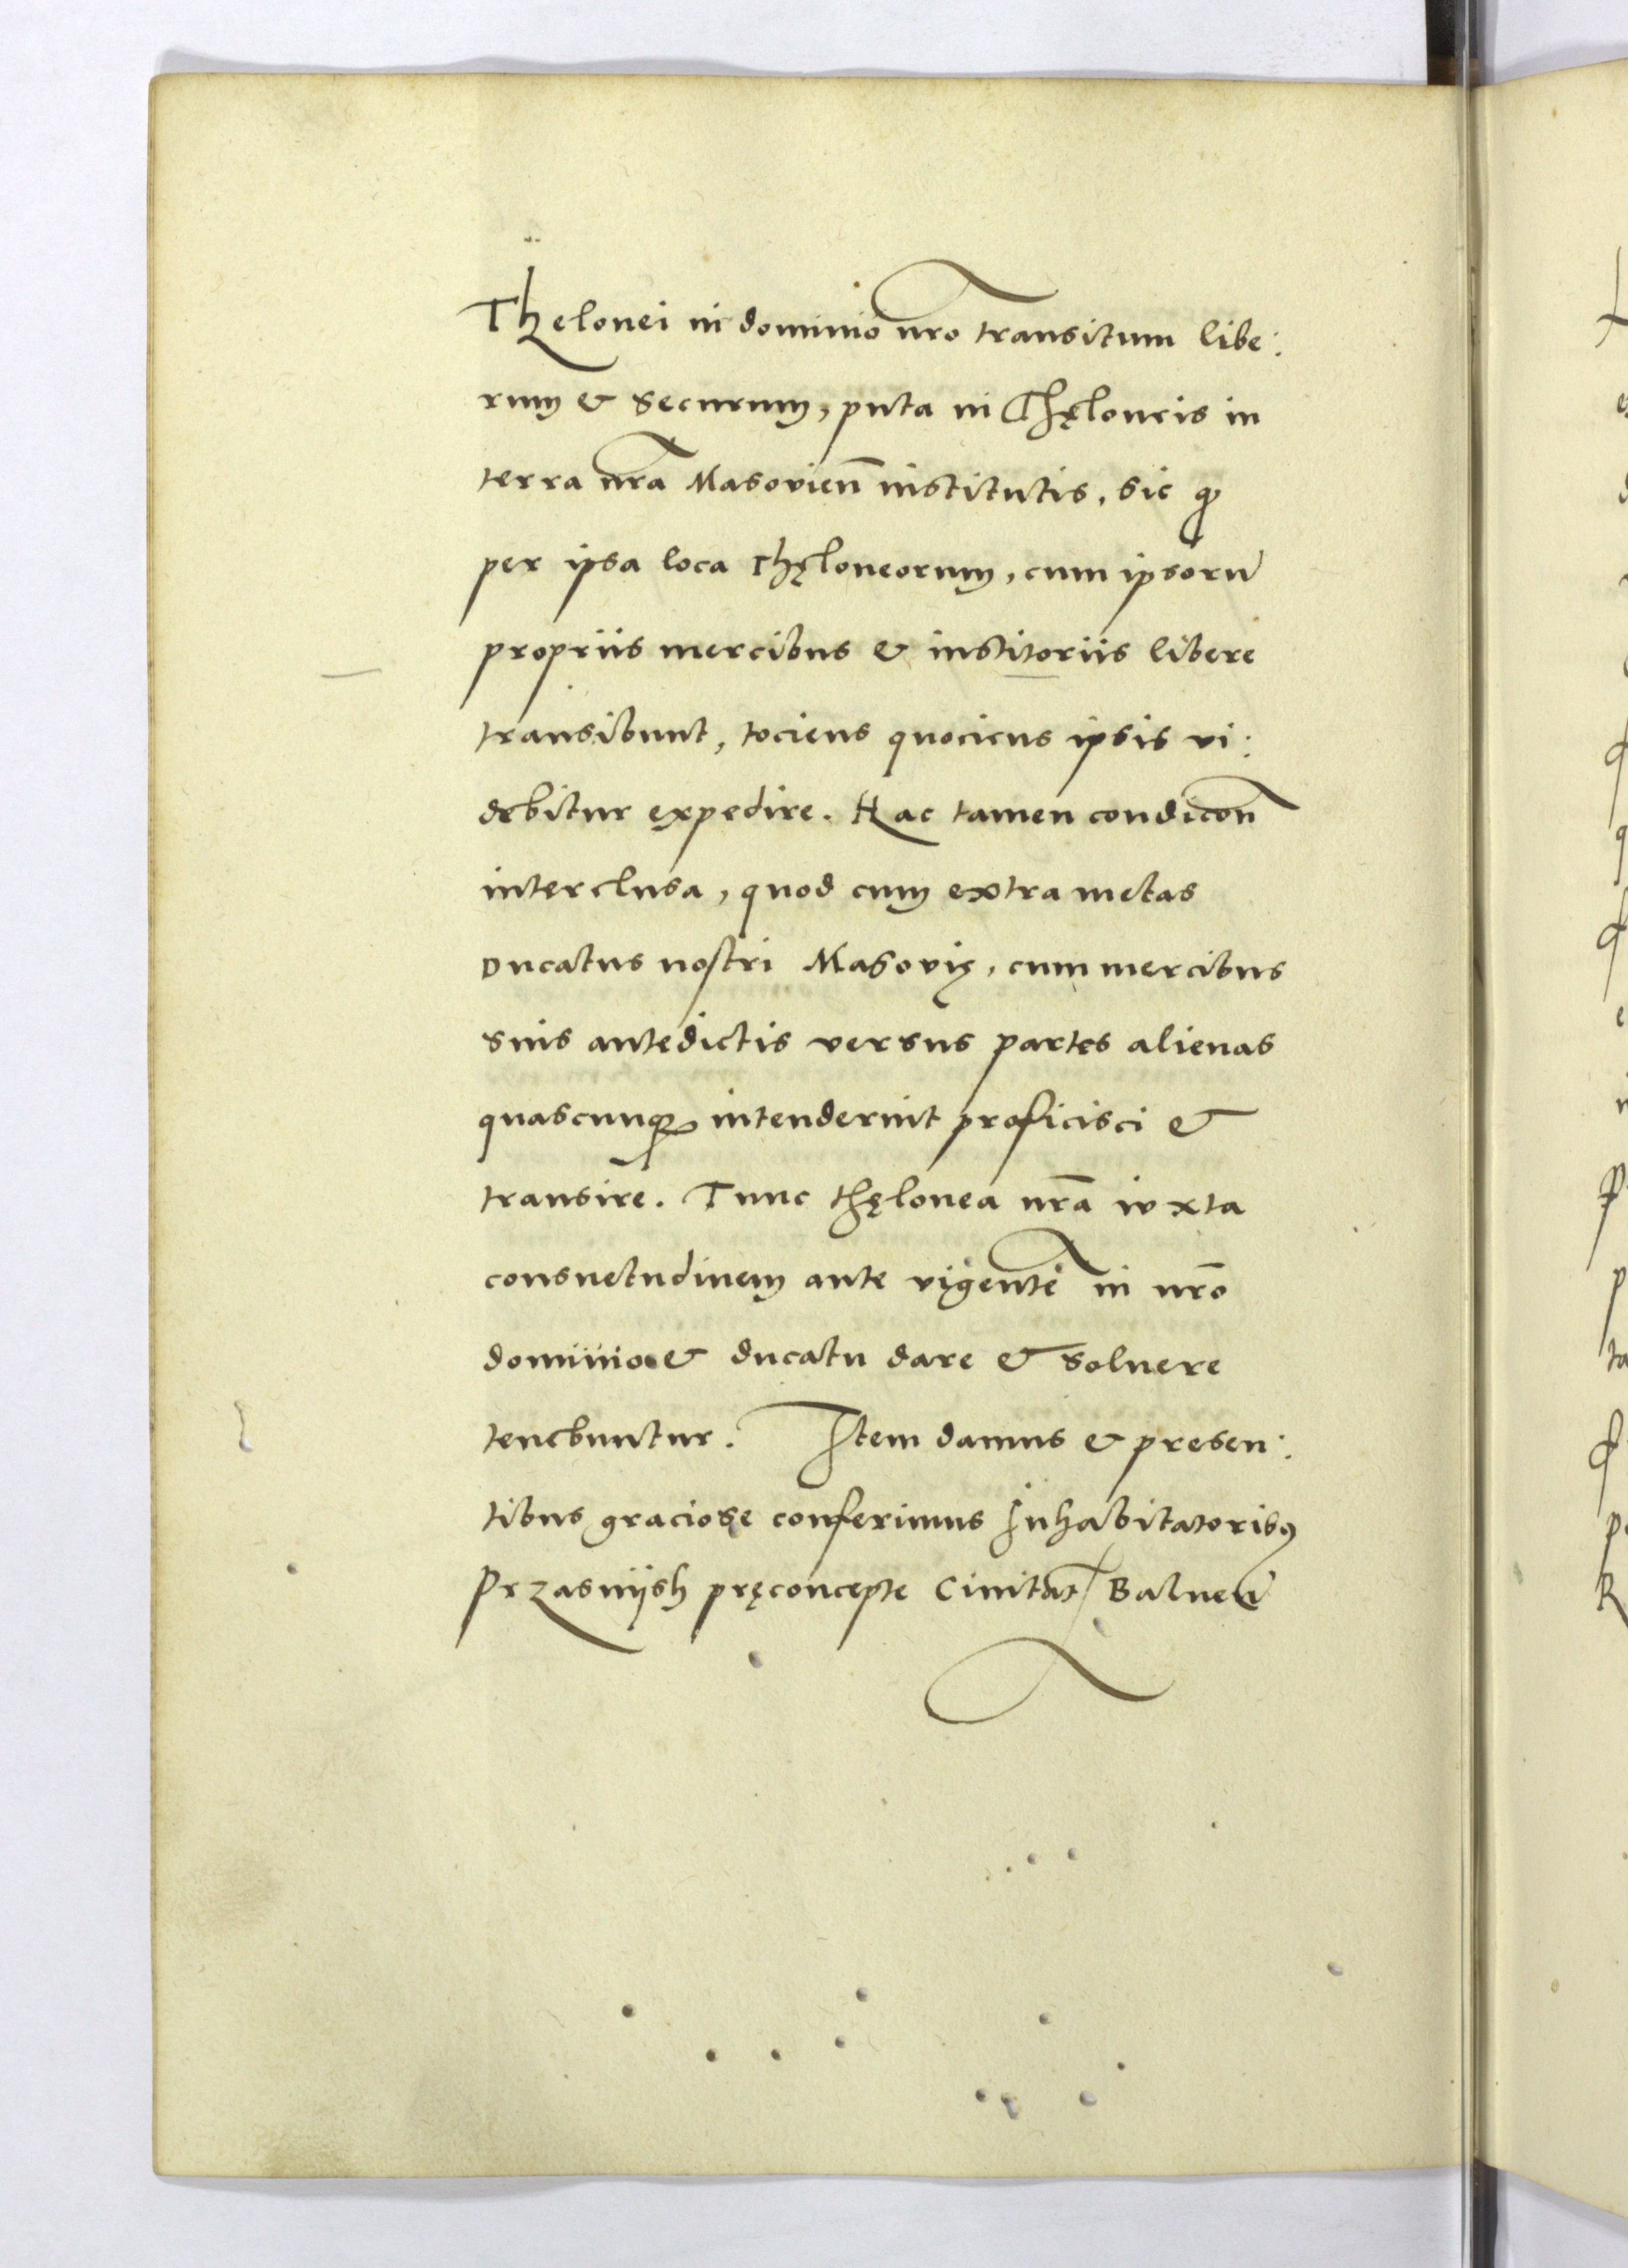 Thelonei in dominio nr̃o transitum libe:
rum & securum, puta in Thęloneis in
terra nr̃a Masovieñ institutis, sic ꝙ
per ipsa loca thęloneorum, cum ipsorũ
propriis mercibus & institoriis libere
transibunt, tociens quociens ipsis vi:
debitur expedire. Hac tamen condicoñ
interclusa, quod cum extra metas
Ducatus nostri Masovię, cum mercibus
suis antedictis versus partes alienas
quascunqꝫ intenderint proficisci &
transire. Tunc thęlonea nr̃a iuxta
consuetudinem ante vigentẽ in nr̃o
dominio & ducatu dare & soluere
tenebuntur. Item damus & presen:
tibus graciose conferimus Inhabitatoribꝰ
Przasnijsh pręconcepte Ciuitat̃ Balneũ